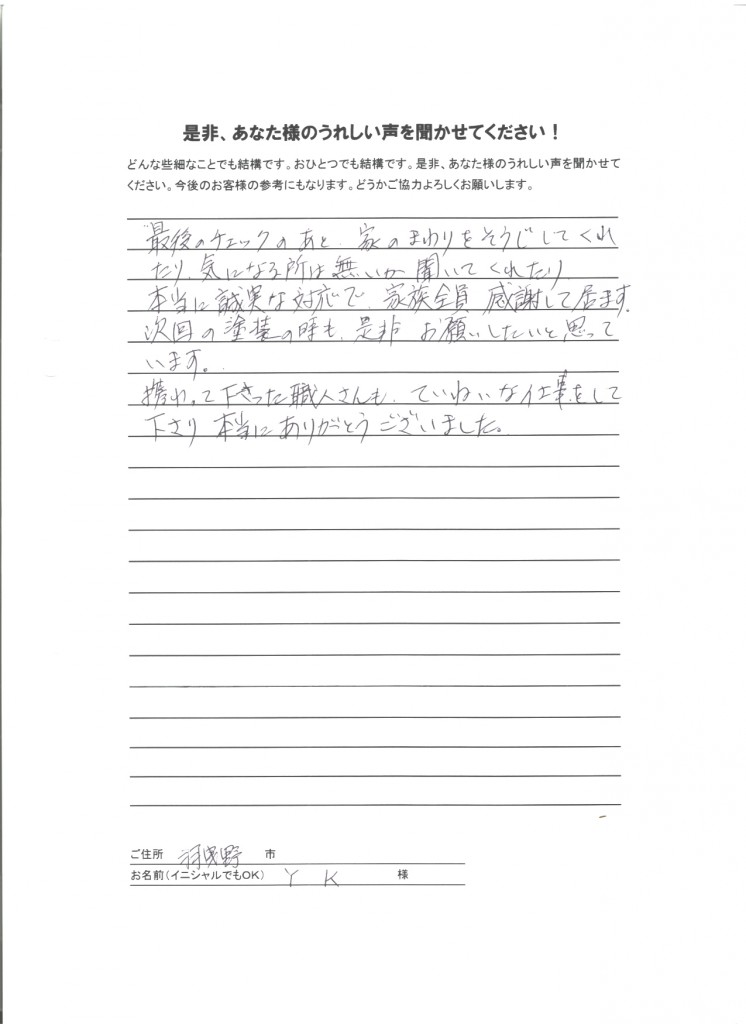 是非、あなた様のうれしい声を聞かせてください！
どんな些細なことでも結構です。おひとつでも結構です。是非、あなた様のうれしい声を聞かせて
ください。今後のお客様の参考にもなります。どうかご協力よろしくお願いします。
最後のチェックのあと、家のまわりをそうじしてくれ
たり、気になる所は無いか聞いてくれたり、
本当に誠実な対応で、家族全員 感謝して居ます。
次回の塗装の時も、是非 お願いしたいと思って
います。
携わって下さった職人さんも、ていねいな仕事をして
下さり 本当にありがとうございました。
ご住所 羽曳野 市
お名前（イニシャルでもOK） Y K 様